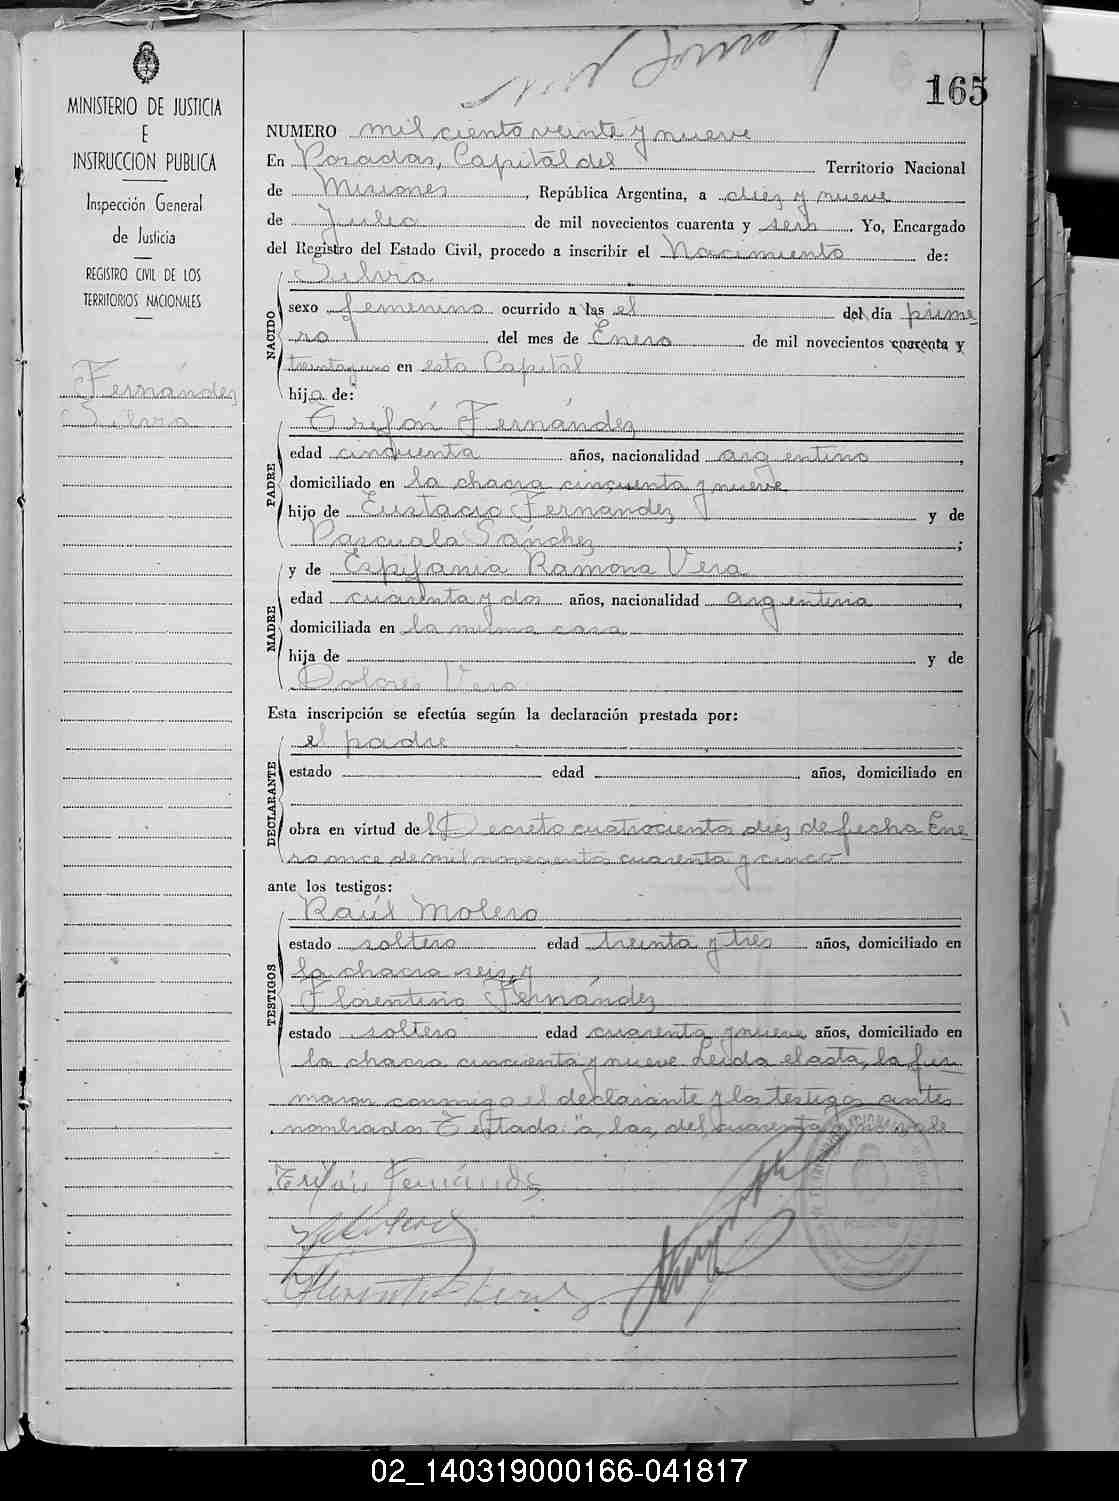 165
MINISTERIO DE JUSTICIA
E
INSTRUCCION PUBLICA
Inspección General
de Justicia
REGISTRO CIVIL DE LOS
TERRITORIOS NACIONALES
Fernández
Silvia
NUMERO mil ciento veinte y nueve
En Posadas, Capital del Territorio Nacional
de Misiones, República Argentina, a diez y nueve
de Julio de mil novecientos cuarenta y seis. Yo, Encargado
del Registro del Estado Civil, procedo a inscribir el Nacimiento de:
NACIDO
Silvia
sexo femenino ocurrido a las el del dia prime
ro del mes de Enero de mil novecientos cuarenta y
treinta y uno en esta Capital
hija de:
PADRE
Trifón Fernández
edad cincuenta años, nacionalidad argentino,
domiciliado en la chacra cincuenta y nueve
hijo de Eustacio Fernandez y de
Pascuala Sánchez;
MADRE
y de Espifania Ramona Vera
edad cuarenta y dos años, nacionalidad argentina,
domiciliada en la misma casa
hija de y de
Dolores Vera
Esta inscripción se efectúa según la declaración prestada por:
DECLARANTE
el padre
estado edad años, domiciliado en
obra en virtud del Decreto cuatrocientos diez de fecha Ene
ro once de mil novecientos cuarenta y cinco
ante los testigos:
TESTIGOS
Raúl Molero
estado soltero edad treinta y tres años, domiciliado en
la chacra seis y
Florentino Fernández
estado soltero edad cuarenta y nueve años, domiciliado en
la chacra cincuenta y nueve Leida el acta, la fir
maron conmigo el declarante y los testigos antes
nombrados Testado: a, las, del, cuarenta y
Trifón Fernández
02_140319000166-041817